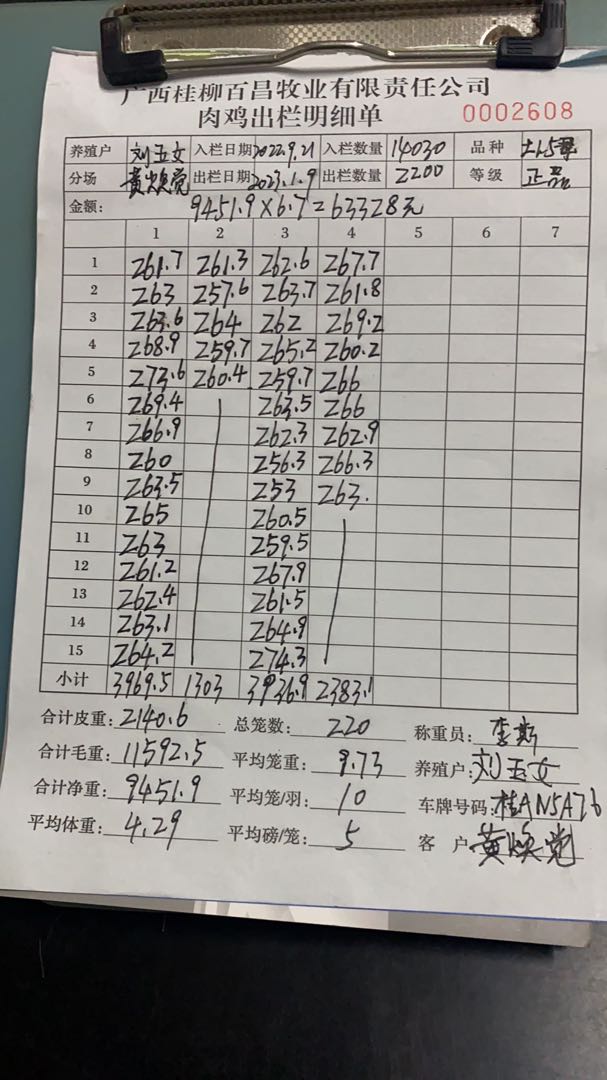 广西桂柳百昌牧业有限责任公司
肉鸡出栏明细单 0002608
养殖户 刘玉文 入栏日期 2022.9.21 入栏数量 14030 品种 土1.5母
分场 黄焕党 出栏日期 2023.1.9 出栏数量 2200 等级 正品
金额: 9451.9×6.7=63328元
1 2 3 4 5 6 7
1 261.7 261.3 262.6 267.7
2 263 257.6 263.7 261.8
3 263.6 264 262 269.2
4 268.9 259.7 265.2 260.2
5 273.6 260.4 259.7 266
6 269.4 263.5 266
7 266.9 262.3 262.9
8 260 256.3 266.3
9 263.5 253 263.
10 265 260.5
11 263 259.5
12 261.2 267.9
13 262.4 261.5
14 263.1 264.9
15 264.2 274.3
小计 3969.5 1303 3936.9 2383.1
合计皮重: 2140.6 总笼数: 220 称重员: 李斯
合计毛重: 11592.5 平均笼重: 9.73 养殖户: 刘玉文
合计净重: 9451.9 平均笼/羽: 10 车牌号码: 桂AN5A76
平均体重: 4.29 平均磅/笼: 5 客户 黄焕党